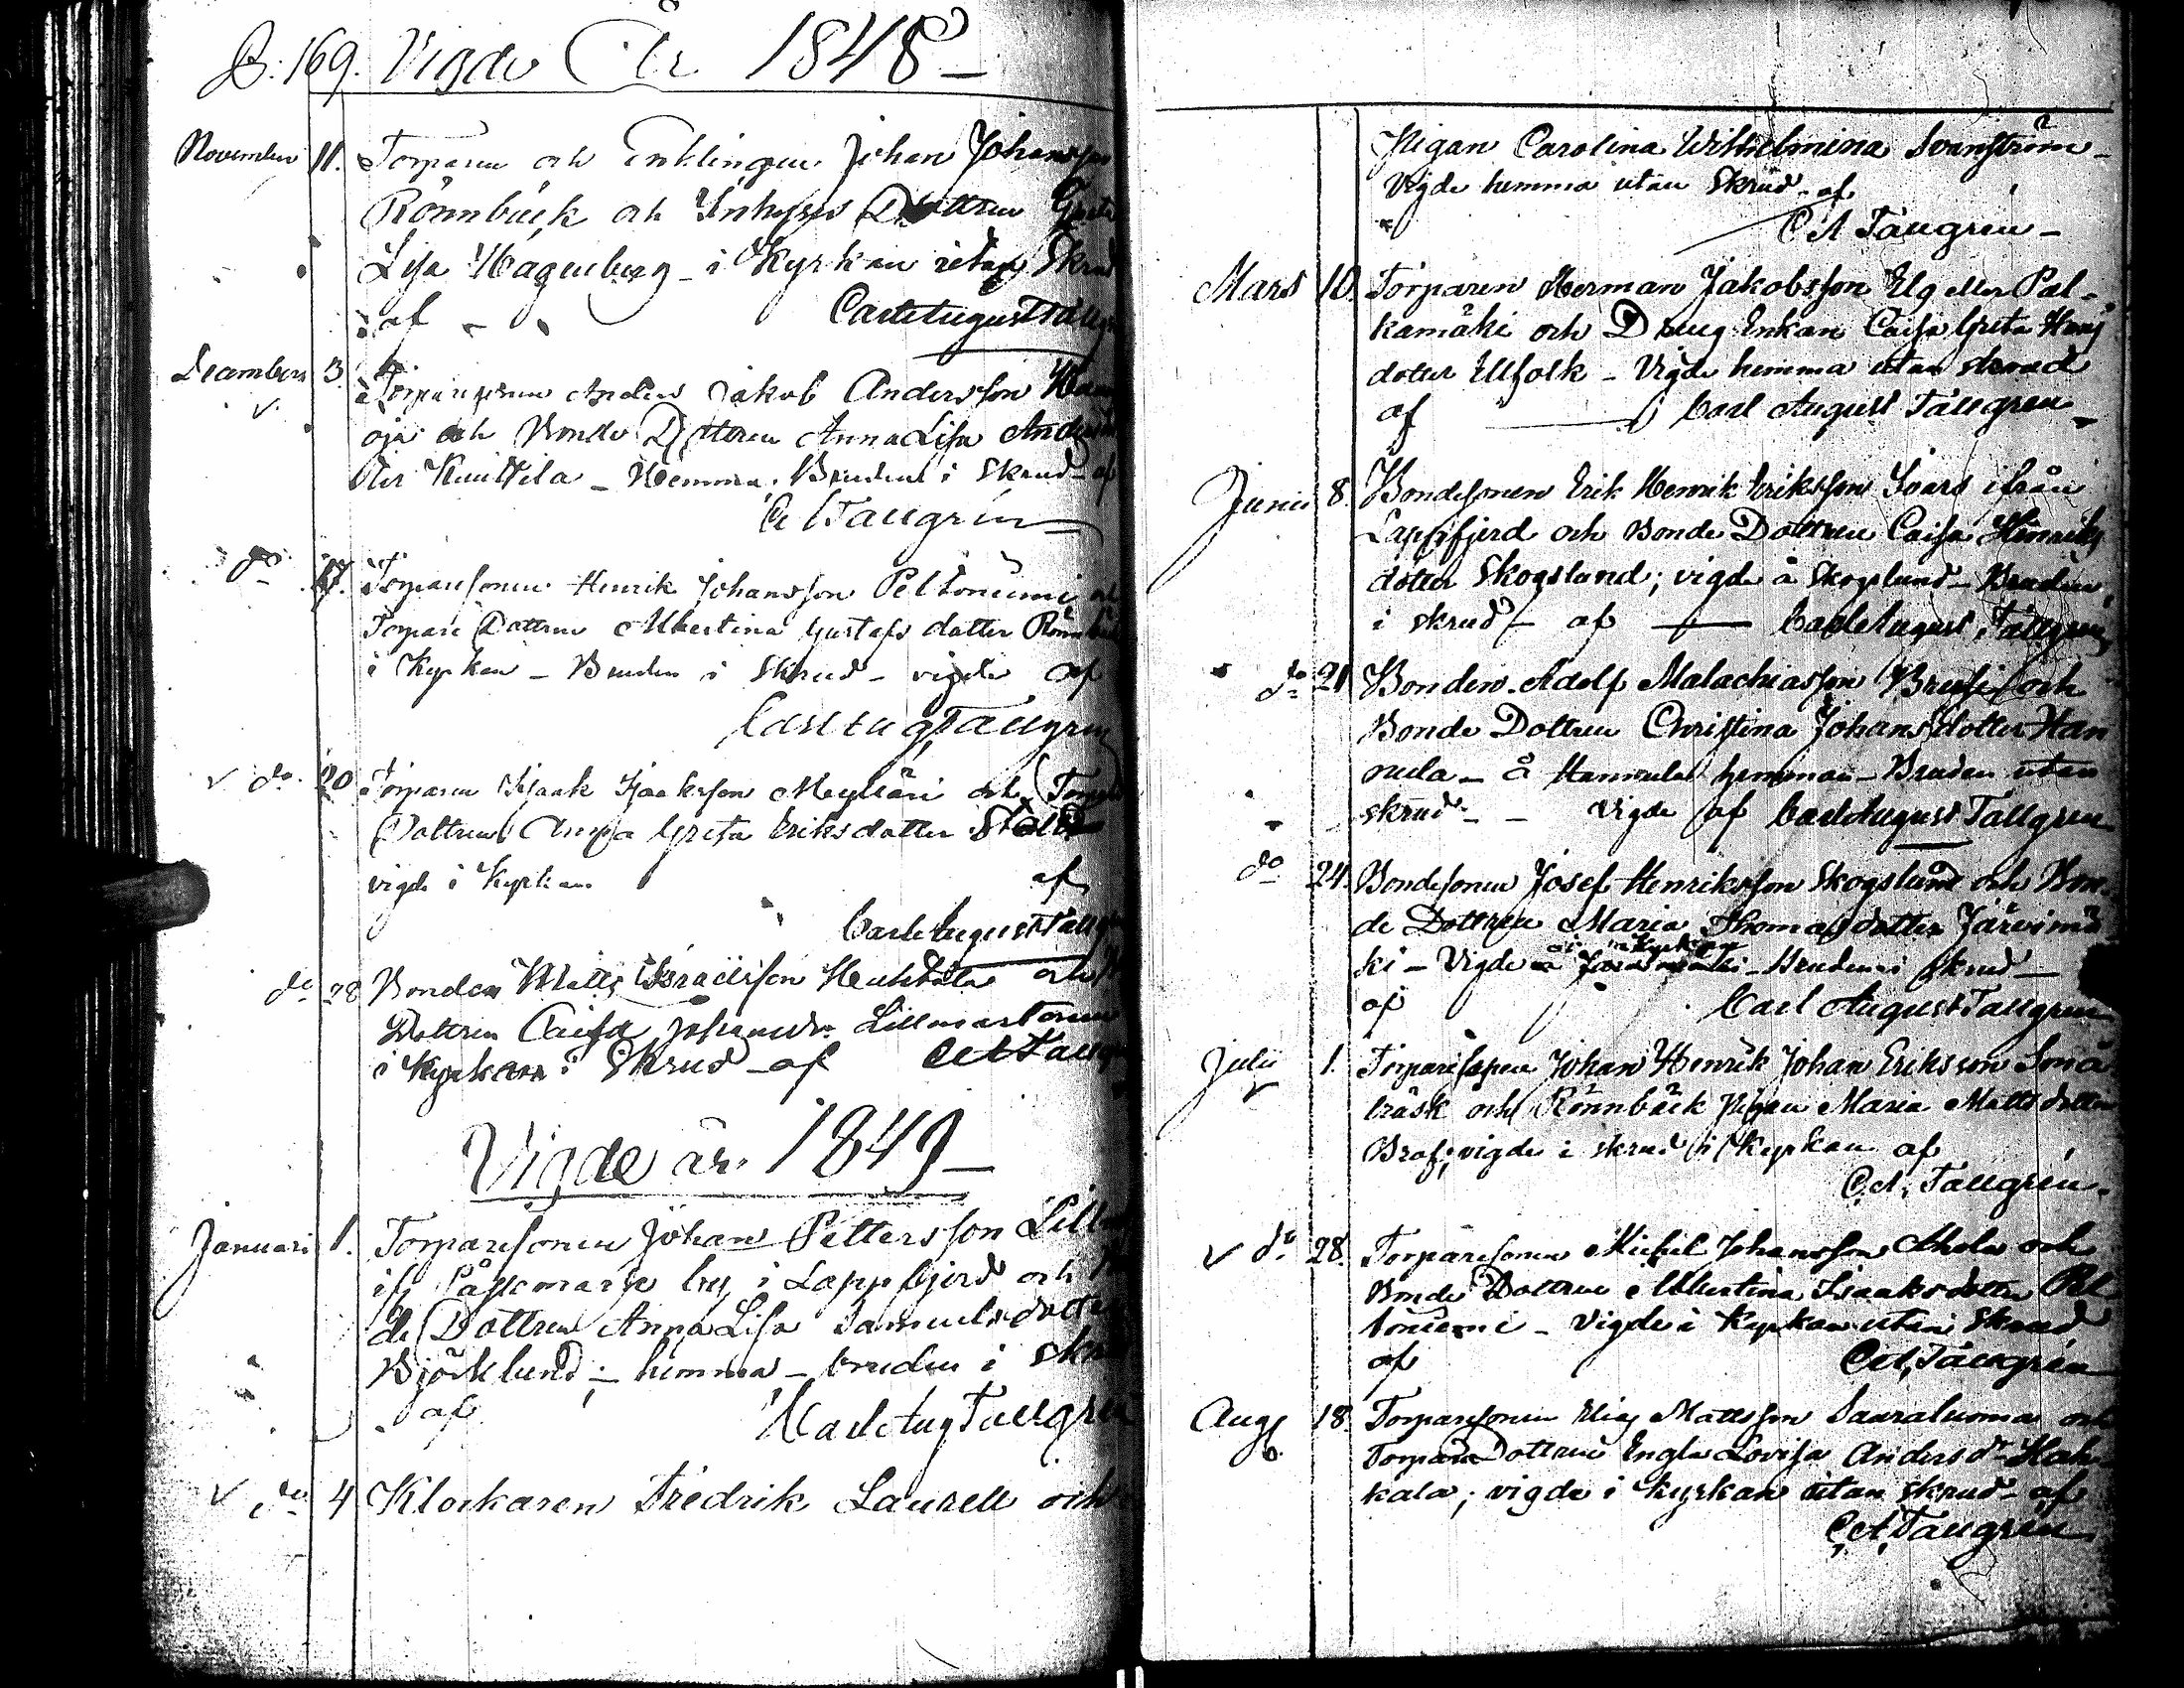 P: 169. Vigde År 1848 –
November 11. Torparen och Enklingen Johan Johansson
Rönnbäck och Inhyses Dottren Greta
Lisa Hagenberg – i Kyrkan utan Skrud
af – Carl August Tallgren
December 3. Torparesonen Anders Jakob Andersson
oja och Bonde Dottren Anna Lisa Anders
dter Knuttila – Hemma. Bruden i Skrud – af
C A Tallgren
do 17. Torparesonen Henrik Johansson Peltoniemi och
Torpare Dottren Albertina Gustafs dotter Rönnbäck
i Kyrkan – Bruden i Skrud – vigde af
Carl Aug Tallgren
do 20 Torparen Isaak Isaksson Myllari och Torpare
Dottren Anna Greta Eriksdotter
vigde i Kyrkan af
Carl August Tallgren
do 28 Bonden Matts Israelsson Huhtala och
Dottren Caisa Johansdr Lillmartonen
i Kyrkan i Skrud – af C A Tallgren
Vigde år 1849 –
Januari 1. Torparesonen Johan Pettersson Lill
if Påskmark by i Lappfjerd och
de Dottren Anna Lisa Samuelsdotter
Björklund – hemma – bruden i Skrud
af Carl Aug Tallgren
do 4 Klockaren Fredrik Laurell och
Pigan Carolina Wilhelmina Svanström –
Vigde hemma utan Skrud – af
C A Tallgren –
Mars 10. Torparen Herman Jakobsson Elg eller Pal-
kamäki och Dreng Enkan Caisa Greta Henrs
dotter Ulfolk – Vigde hemma utan skrud
af Carl August Tallgren –
Junii 8. Bondesonen Erik Henrik Eriksson Ivars ifrån
Lappfjerd och Bonde Dottren Caisa Henriks
dotter Skogslund; vigde å Skogslund – Bruden
i skrud – af Carl August Tallgren
do 21 Bonden Adolf Malachiasson Breusi och
Bonde Dottren Christina Johansdotter Han
nula – å Hannula hemman – Bruden utan
skrud – – Vigde af Carl August Tallgren
do 24. Bondesonen Josef Henriksson Skogslund och Bon-
de Dottren Maria Thomasdotter Järvimä
i Kyrkan
ki – Vigde – Bruden i skrud –
af Carl August Tallgren
Julii 1. Torparesonen Johan Henrik Johan Eriksson Små
träsk och Rönnbäck Pigan Maria Mattsdotter
Braf; vigde i skrud i Kyrkan af
C. A. Tallgren.
do 28. Torparesonen Michel Johansson Ahola och
Bonde Dottren Albertina Isaaksdotter Pel
toniemi – Vigde i Kyrkan utan Skrud
af C A Tallgren
Aug 18. Torparesonen Elias Mattsson Saaraluoma och
Torpare Dottren Engla Lovisa Andersdr Hak-
kala; vigde i kyrkan utan skrud – af
C A Tallgren